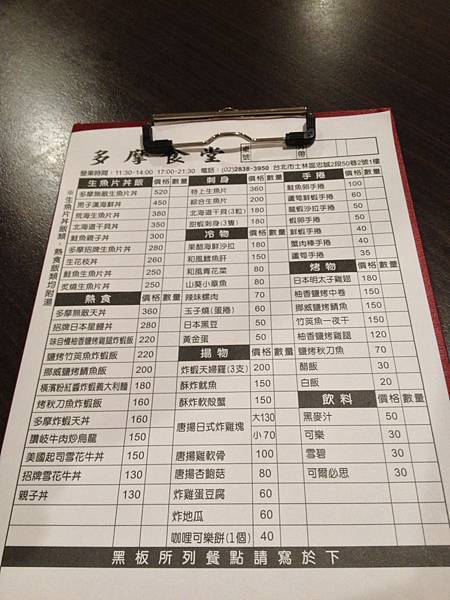 多摩食堂
桌號
帶
營業時間：11:30-14:00 17:00-21:30 電話：(02)2838-3950 台北市士林區忠誠2段50巷2號1樓
※生魚片丼飯類、熱食飯類均附湯
生魚片丼飯 價格 數量
多摩無敵生魚片丼 520
男子漢海鮮丼 450
荒海生魚片丼 380
北海道干貝丼 350
鮭魚親子丼 300
多摩招牌生魚片丼 280
生花枝丼 260
鮭魚生魚片丼 250
炙燒生魚片丼 250
熱食 價格 數量
多摩無敵天丼 360
招牌日本星鰻丼 280
味自慢柚香鹽烤雞腿炸蝦飯 220
鹽烤竹筴魚炸蝦飯 220
挪威鹽烤鯖魚飯 200
橫濱粉紅醬炸蝦義大利麵 180
烤秋刀魚炸蝦飯 160
多摩炸蝦天丼 160
讚岐牛肉炒烏龍 150
美國起司雪花牛丼 150
招牌雪花牛丼 130
親子丼 130
刺身 價格 數量
特上生魚片 360
綜合生魚片 200
北海道干貝(3粒) 180
甜蝦刺身(3隻) 180
冷物 價格 數量
果醋海鮮沙拉 180
和風鱈魚肝 150
和風青花菜 80
山葵小章魚 80
辣味螺肉 70
玉子燒(蛋捲) 60
日本黑豆 50
黃金蛋 50
揚物 價格 數量
炸蝦天婦羅(3支) 200
酥炸魷魚 150
酥炸軟殼蟹 150
唐揚日式炸雞塊 大130
小70
唐揚雞軟骨 100
唐揚杏鮑菇 80
炸雞蛋豆腐 60
炸地瓜 60
咖哩可樂餅(1個) 40
手捲 價格 數量
鮭魚卵手捲 100
蘆筍鮮蝦手捲 60
龍蝦沙拉手捲 50
蝦卵手捲 50
鮮蝦手捲 40
蟹肉棒手捲 40
蘆筍手捲 35
烤物 價格 數量
日本明太子雞翅 180
柚香鹽烤中卷 150
挪威鹽烤鯖魚 150
竹筴魚一夜干 150
柚香鹽烤雞腿 120
鹽烤秋刀魚 70
醋飯 30
白飯 20
飲料 價格 數量
黑麥汁 50
可樂 30
雪碧 30
可爾必思 30
黑板所列餐點請寫於下